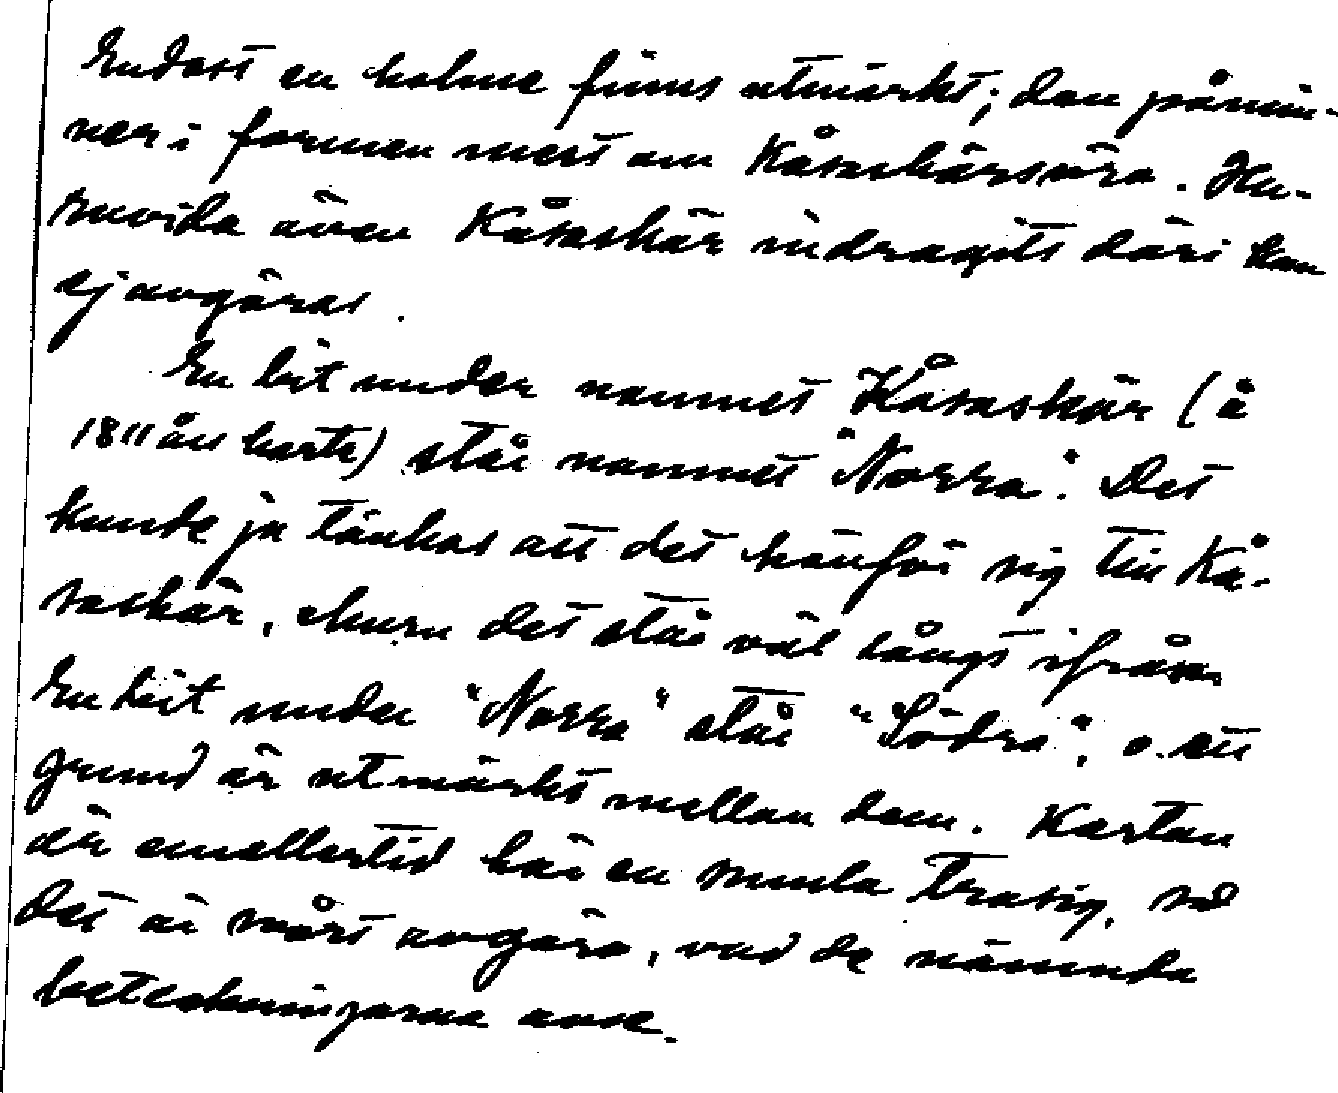 Endast en holme finns utmärkt; den påmin-
ner i formen mest om Kåsaskärsöra. Hu-
ruvida även Kåsaskär indragits däri kan
ej avgöras.
En bit under namnet Kåsaskär (å
1811 års karta) står namnet "Norra". Det
kunde ju tänkas att det hänför sig till Kå-
saskär, ehuru det står väl långt ifrån.
En bit under "Norra" står "Södra", o. ett
grund är utmärkt mellan dem. Kartan
är emellertid här en smula trasig, så
det är svårt avgöra, vad de nämnda
beteckningarna avse.